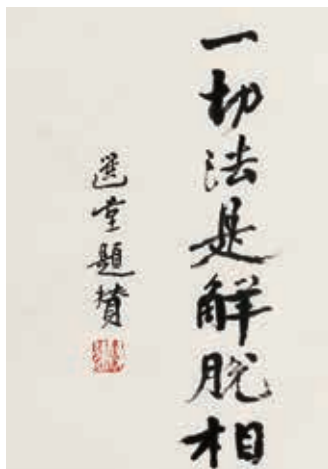 一切法是解脱相
選堂題贊